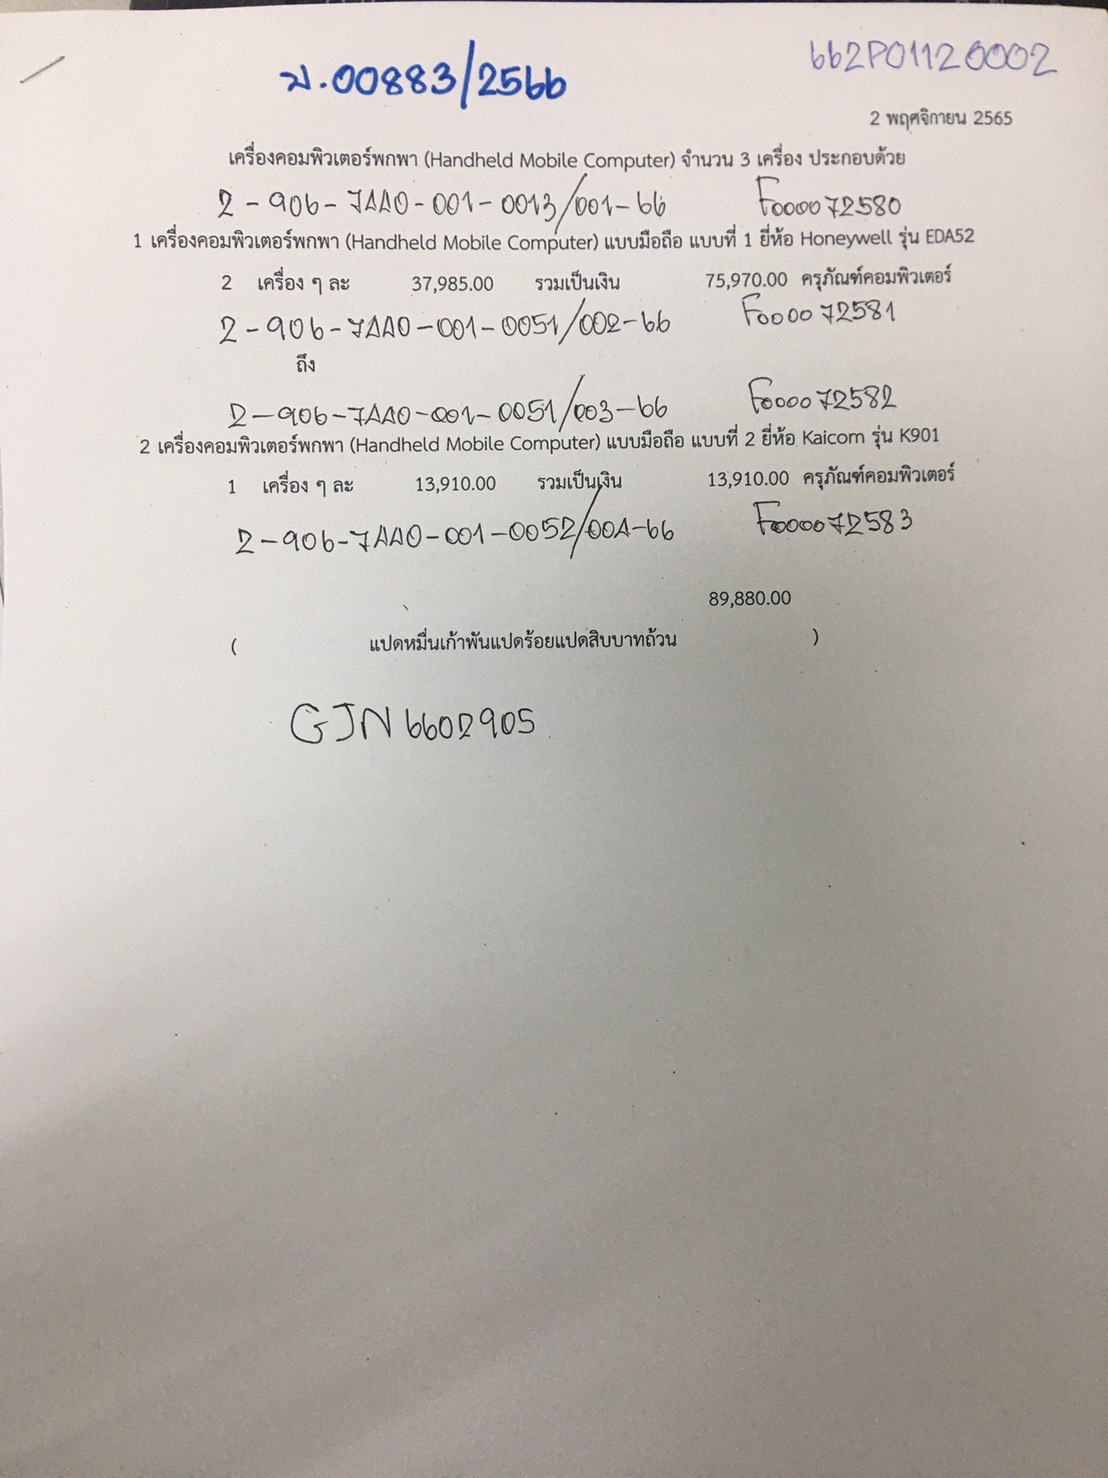 ม.00883/2566
662P01120002
2 พฤศจิกายน 2565
เครื่องคอมพิวเตอร์พกพา (Handheld Mobile Computer) จำนวน 3 เครื่อง ประกอบด้วย
2-906-7440-001-0013/001-66 F000072580
1 เครื่องคอมพิวเตอร์พกพา (Handheld Mobile Computer) แบบมือถือ แบบที่ 1 ยี่ห้อ Honeywell รุ่น EDA52
2 เครื่อง ๆ ละ 37,985.00 รวมเป็นเงิน 75,970.00 ครุภัณฑ์คอมพิวเตอร์
2-906-7440-001-0051/002-66 F000072581
ถึง
2-906-7440-001-0051/003-66 F000072582
2 เครื่องคอมพิวเตอร์พกพา (Handheld Mobile Computer) แบบมือถือ แบบที่ 2 ยี่ห้อ Kaicom รุ่น K901
1 เครื่อง ๆ ละ 13,910.00 รวมเป็นเงิน 13,910.00 ครุภัณฑ์คอมพิวเตอร์
2-906-7440-001-0052/004-66 F000072583
89,880.00
( แปดหมื่นเก้าพันแปดร้อยแปดสิบบาทถ้วน )
GJN6602905